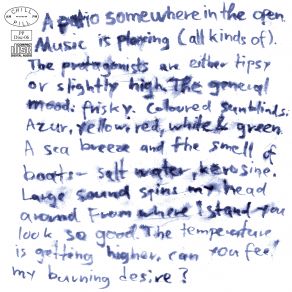 CHILL PILL
PP
Disc 06
COMPACT disc
DIGITAL AUDIO
A patio somewhere in the open.
Music is playing (all kinds of).
The protagonists are either tipsy
or slightly high. The general
mood: frisky. Coloured sunblinds:
Azur, yellow, red, white & green.
A sea breeze and the smell of
boats – salt water, kerosine.
Large sound spins my head
around From where I stand you
look so good The temperature
is getting higher, can you feel
my burning desire?